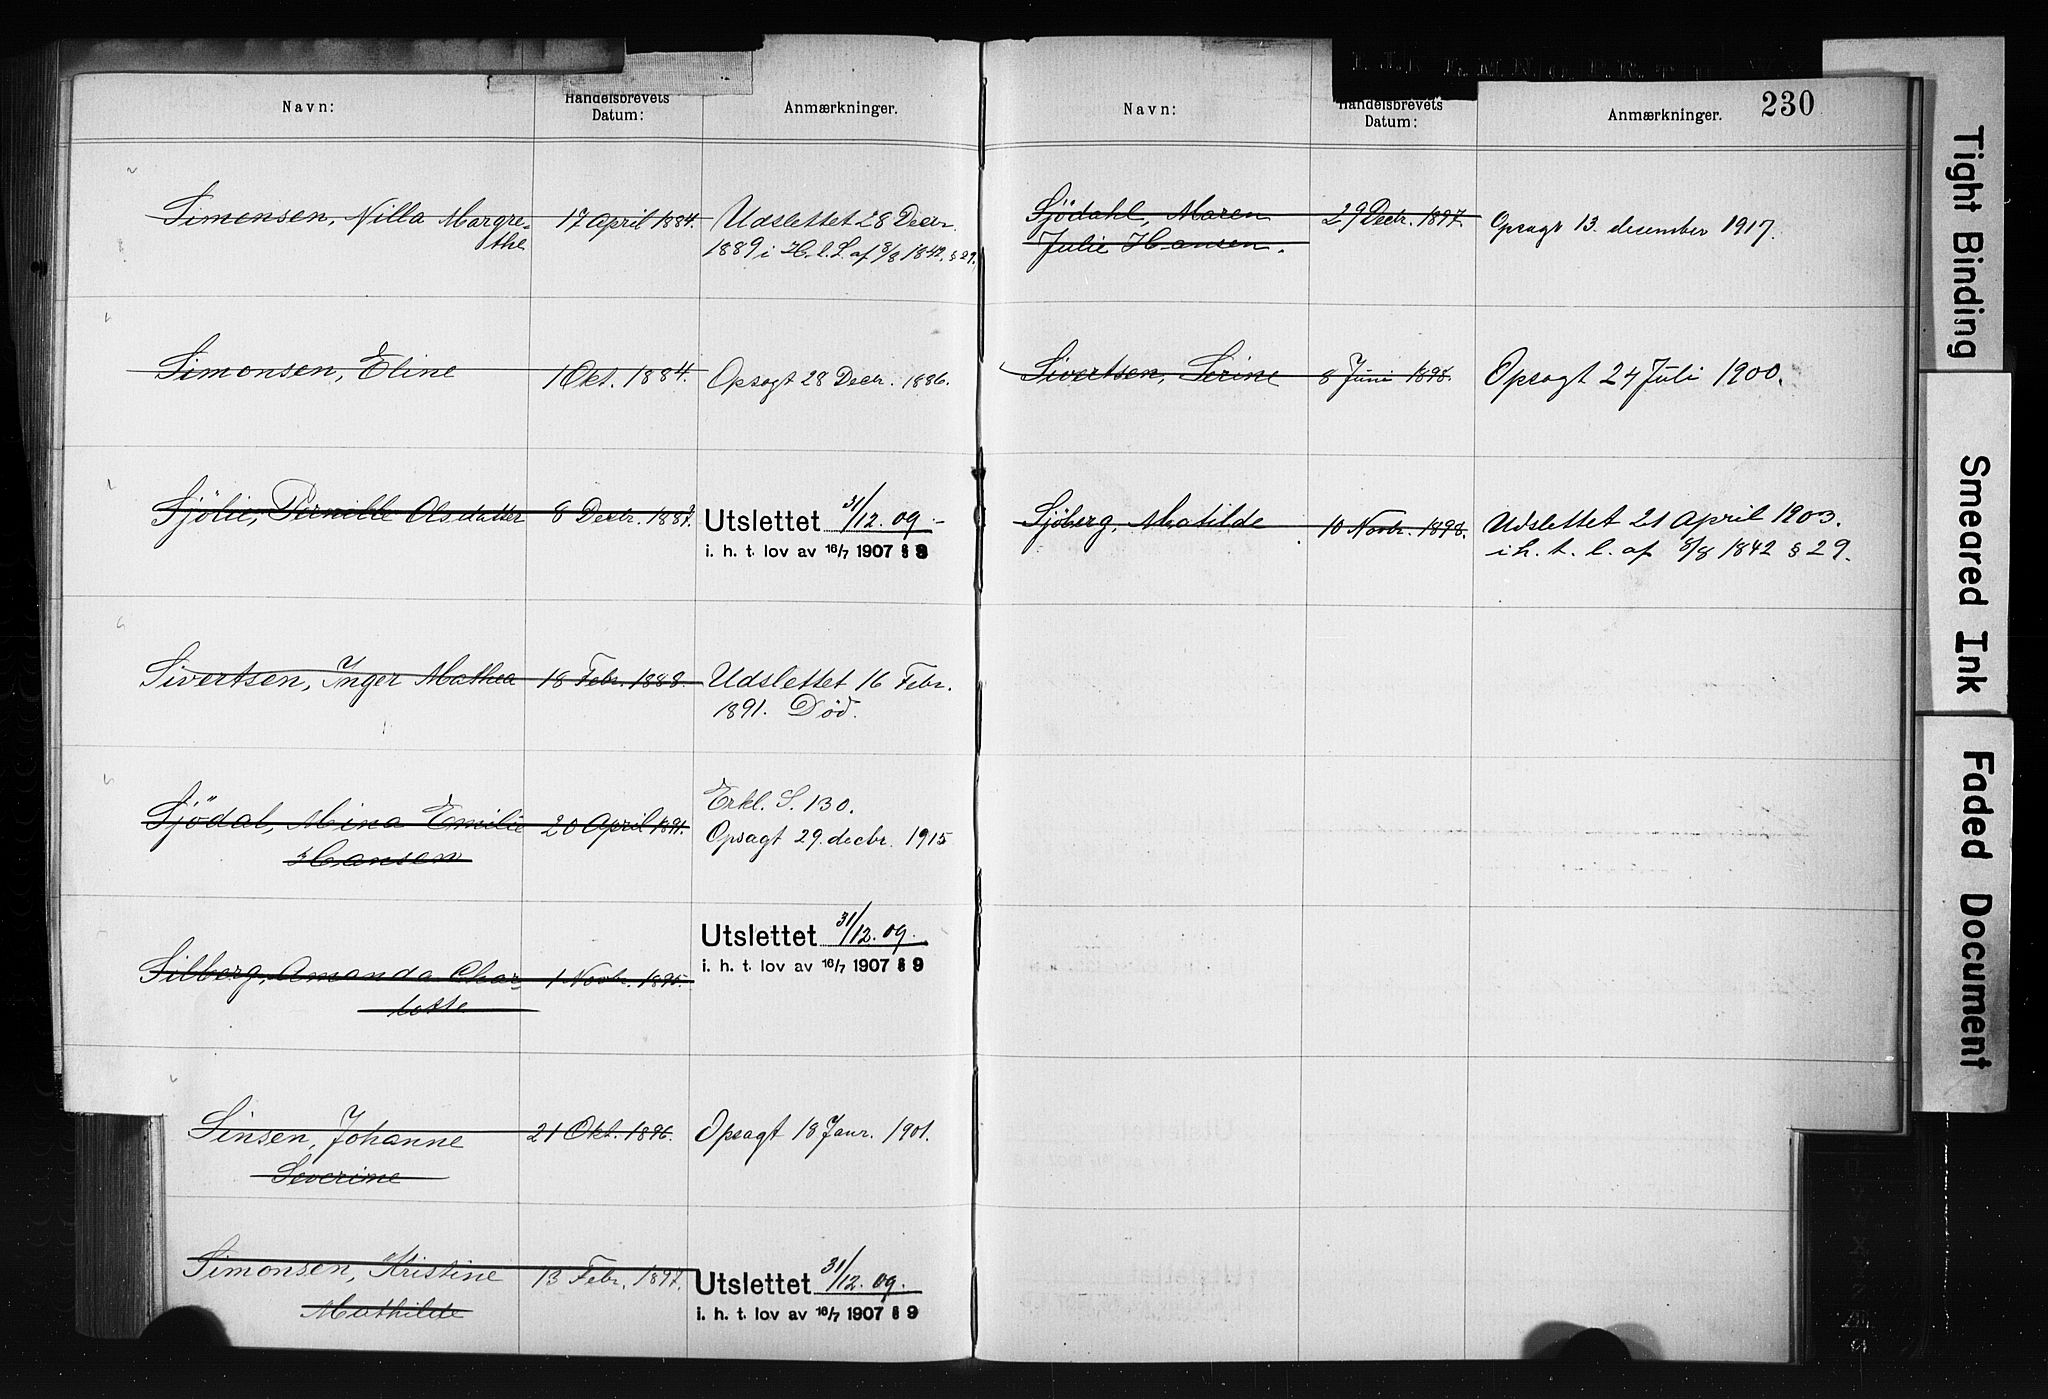 Navn:
Handelsbrevets
Datum:
Anmærkninger.
Simensen, Nilla Margre-
the
17 April 1884.
Udslettet 28 Decbr.
1889 i H. t. L. af 8/8 1842. § 29.
Simonsen, Eline
1 Okt. 1884.
Opsagt 28 Decbr. 1886.
Sjölie, Pernille Olsdatter
8 Decbr. 1887.
Utslettet 31/12. 09.
i. h. t. lov av 16/7 1907 § 9
Sivertsen, Inger Mathea
18 Febr. 1888.
Udslettet 16 Febr.
1891. Död.
Sjödal, Mina Emilie
Hansen
20 April 1891.
Erkl. S. 130.
Opsagt 29. decbr. 1915
Silborg, Amanda Char-
lotte
1 Novbr. 1895.
Utslettet 31/12. 09.
i. h. t. lov av 16/7 1907 § 9
Sinsen, Johanne
Severine
21 Okt. 1896.
Opsagt 18 Janr. 1901.
Simonsen, Kristine
Mathilde
13 Febr. 1897.
Utslettet 31/12. 09.
i. h. t. lov av 16/7 1907 § 9
Navn:
Handelsbrevets
Datum:
Anmærkninger.
230
Sjödahl, Maren
Julie Hansen.
29 Decbr. 1897.
Opsagt 13. desember 1917.
Sivertsen, Serine
8 Juni 1898.
Opsagt 24 Juli 1900.
Sjöberg, Matilde
10 Novbr. 1898.
Udslettet 21 April 1903.
i h. t. l. af 8/8 1842 § 29.
Tight Binding
Smeared Ink
Faded Document